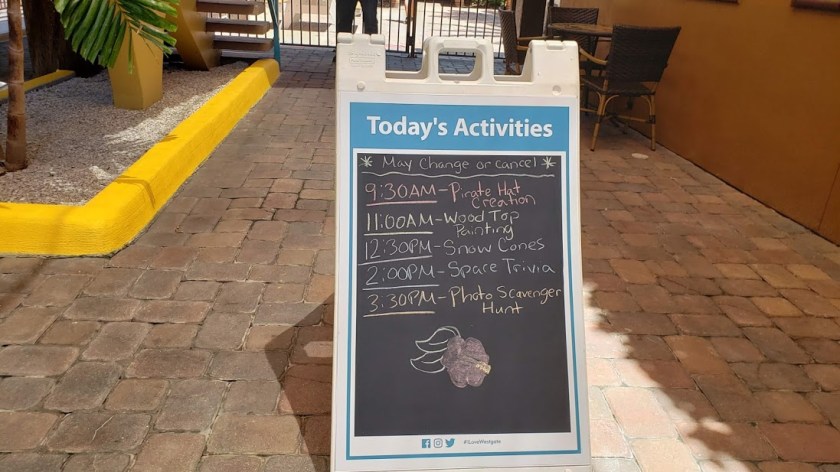 Today's Activities
* May Change or cancel *
9:30AM-Pirate Hat
Creation
11:00AM-Wood Top
Painting
12:30PM-Snow Cones
2:00PM-Space Trivia
3:30PM-Photo Scavenger
Hunt